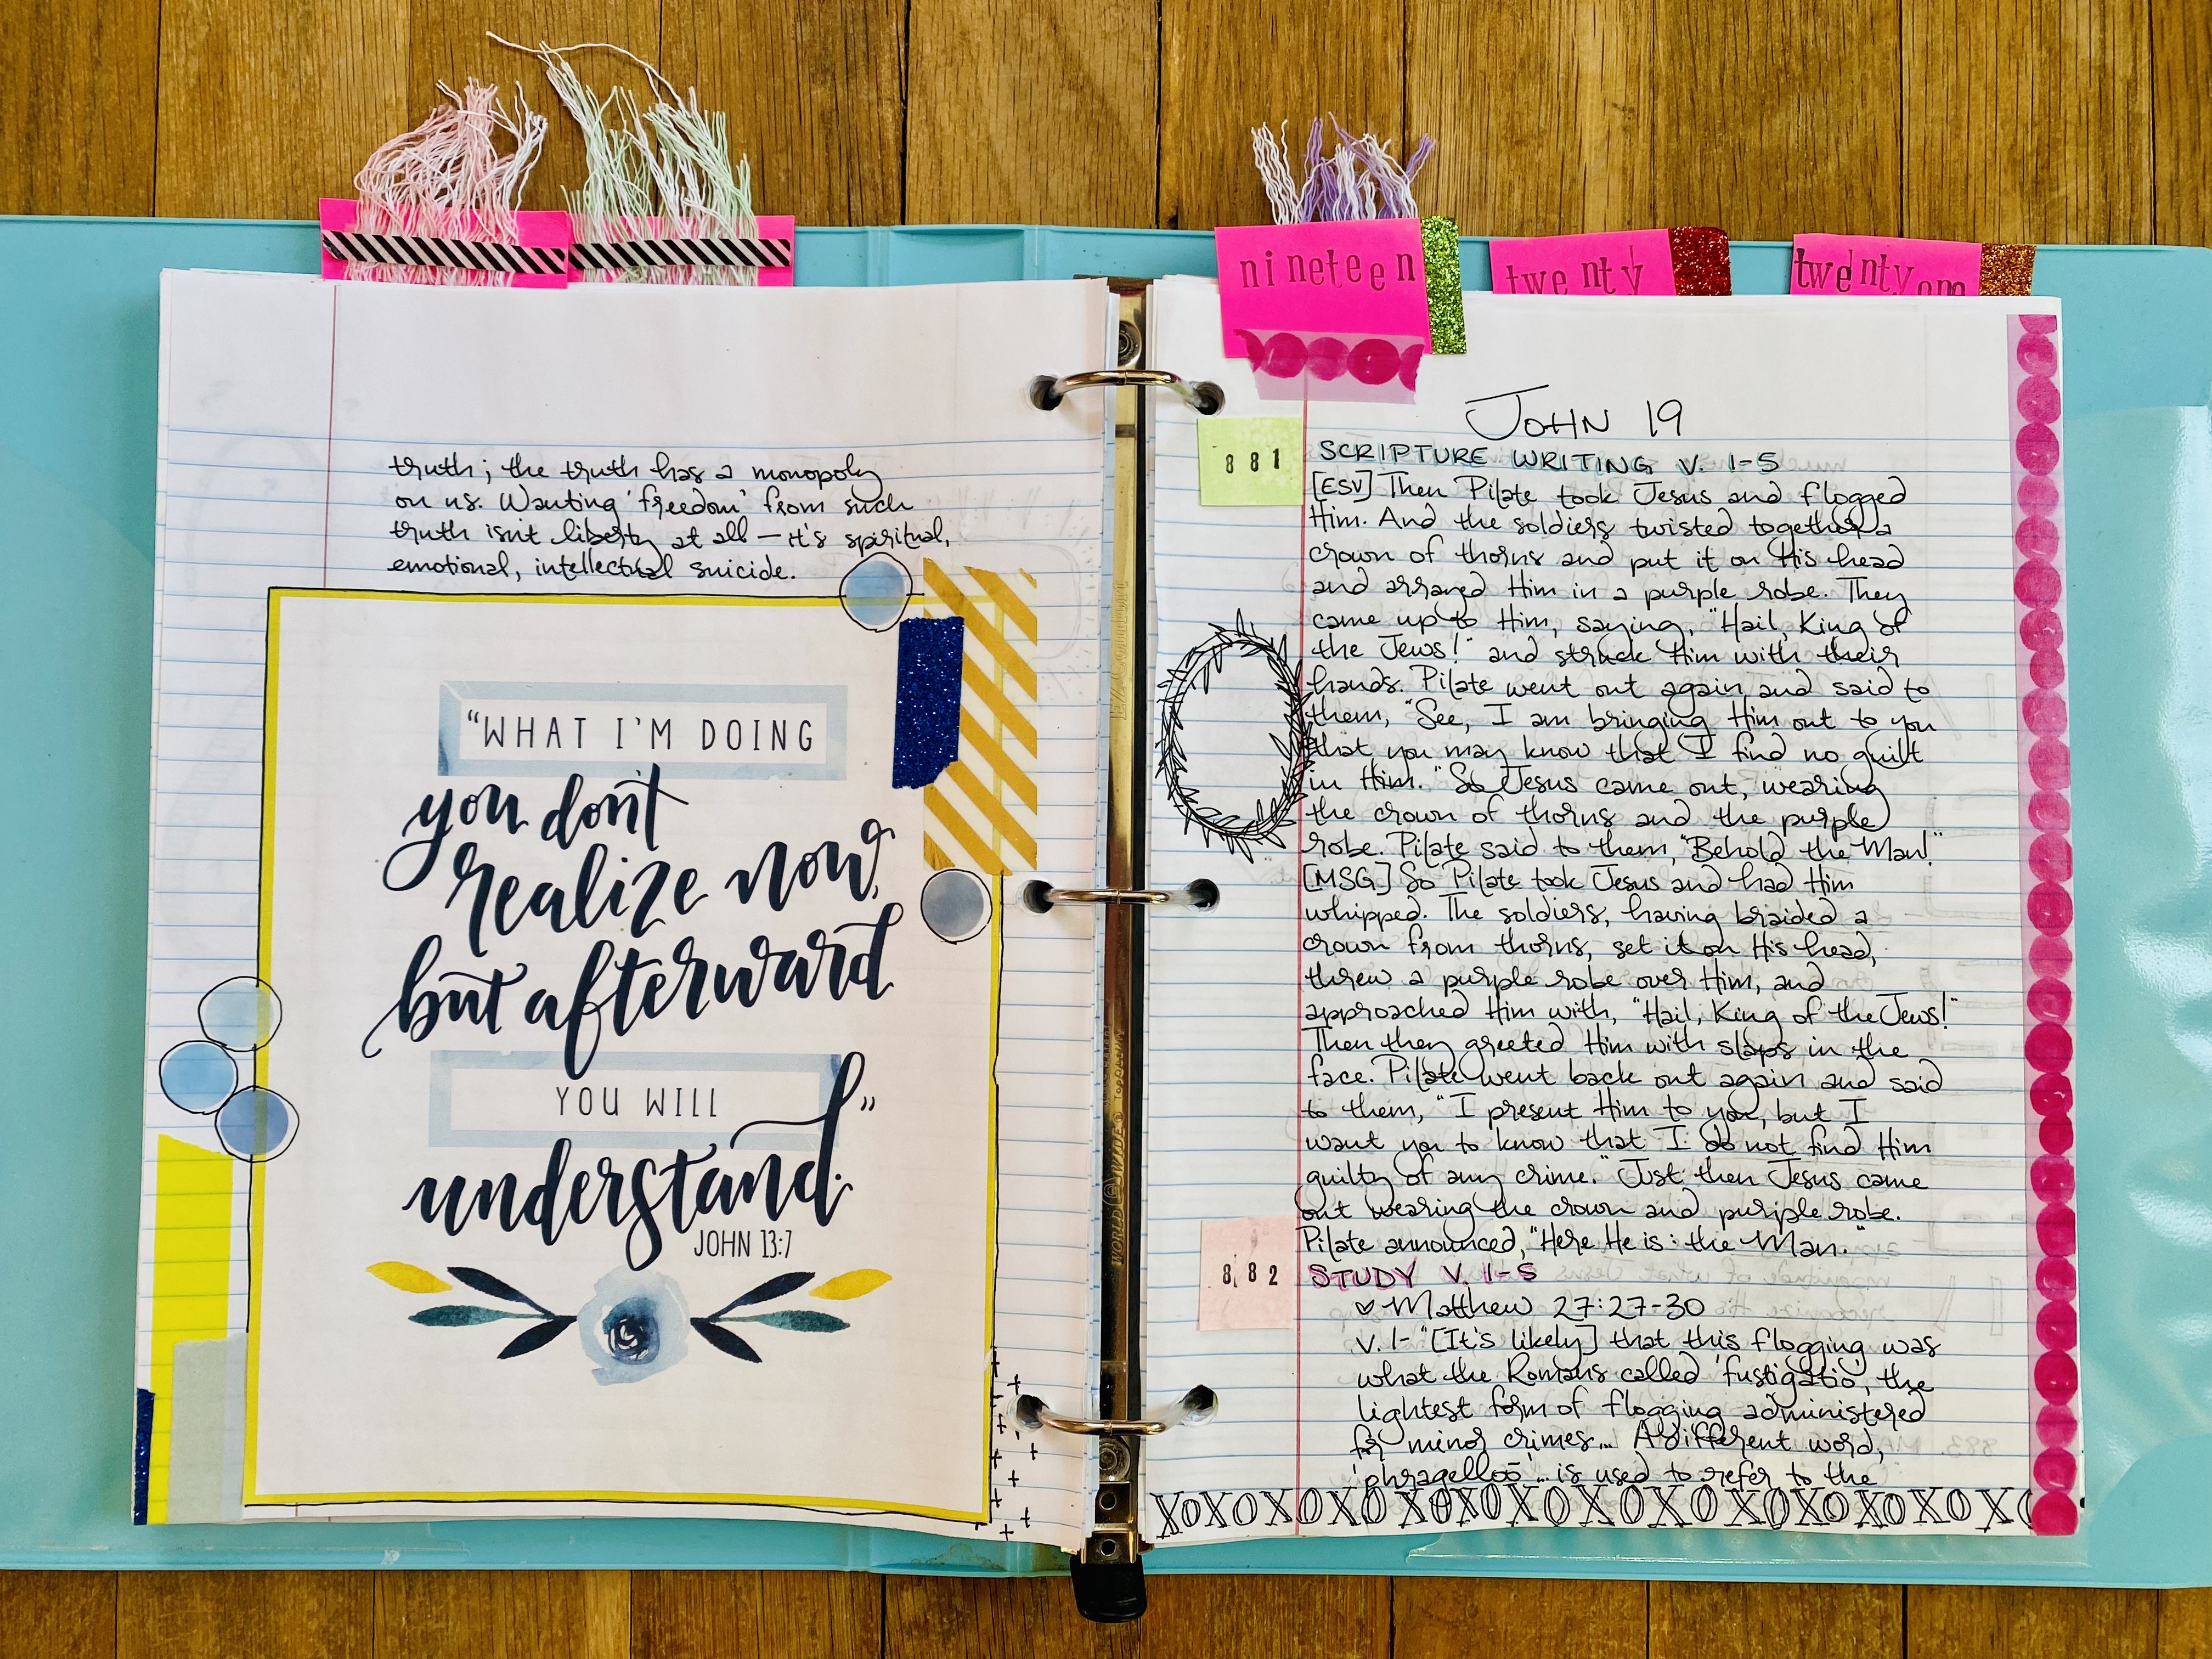 truth; the truth has a monopoly
on us. Wanting 'freedom' from such
truth isn't liberty at all — it's spiritual,
emotional, intellectual suicide.
"WHAT I'M DOING
you don't
realize now,
but afterward
YOU WILL
understand."
JOHN 13:7
nineteen
twenty
twenty one
JOHN 19
881
SCRIPTURE WRITING V. 1-5
[ESV] Then Pilate took Jesus and flogged
Him. And the soldiers twisted together a
crown of thorns and put it on His head
and arrayed Him in a purple robe. They
came up to Him, saying, "Hail, King of
the Jews!" and struck Him with their
hands. Pilate went out again and said to
them, "See, I am bringing Him out to you
that you may know that I find no guilt
in Him." So Jesus came out, wearing
the crown of thorns and the purple
robe. Pilate said to them, "Behold the Man!"
[MSG] So Pilate took Jesus and had Him
whipped. The soldiers, having braided a
crown from thorns, set it on His head,
threw a purple robe over Him, and
approached Him with, "Hail, King of the Jews!"
Then they greeted Him with slaps in the
face. Pilate went back out again and said
to them, "I present Him to you, but I
want you to know that I do not find Him
guilty of any crime." Just then Jesus came
out wearing the crown and purple robe.
Pilate announced, "Here He is: the Man."
882
STUDY V. 1-5
♡ Matthew 27:27-30
v. 1- "[It's likely] that this flogging was
what the Romans called 'fustigatio', the
lightest form of flogging administered
for minor crimes... A different word,
'phragelloō'... is used to refer to the
XOXOXOXOXOXOXOXOXOXOXOXOXOX